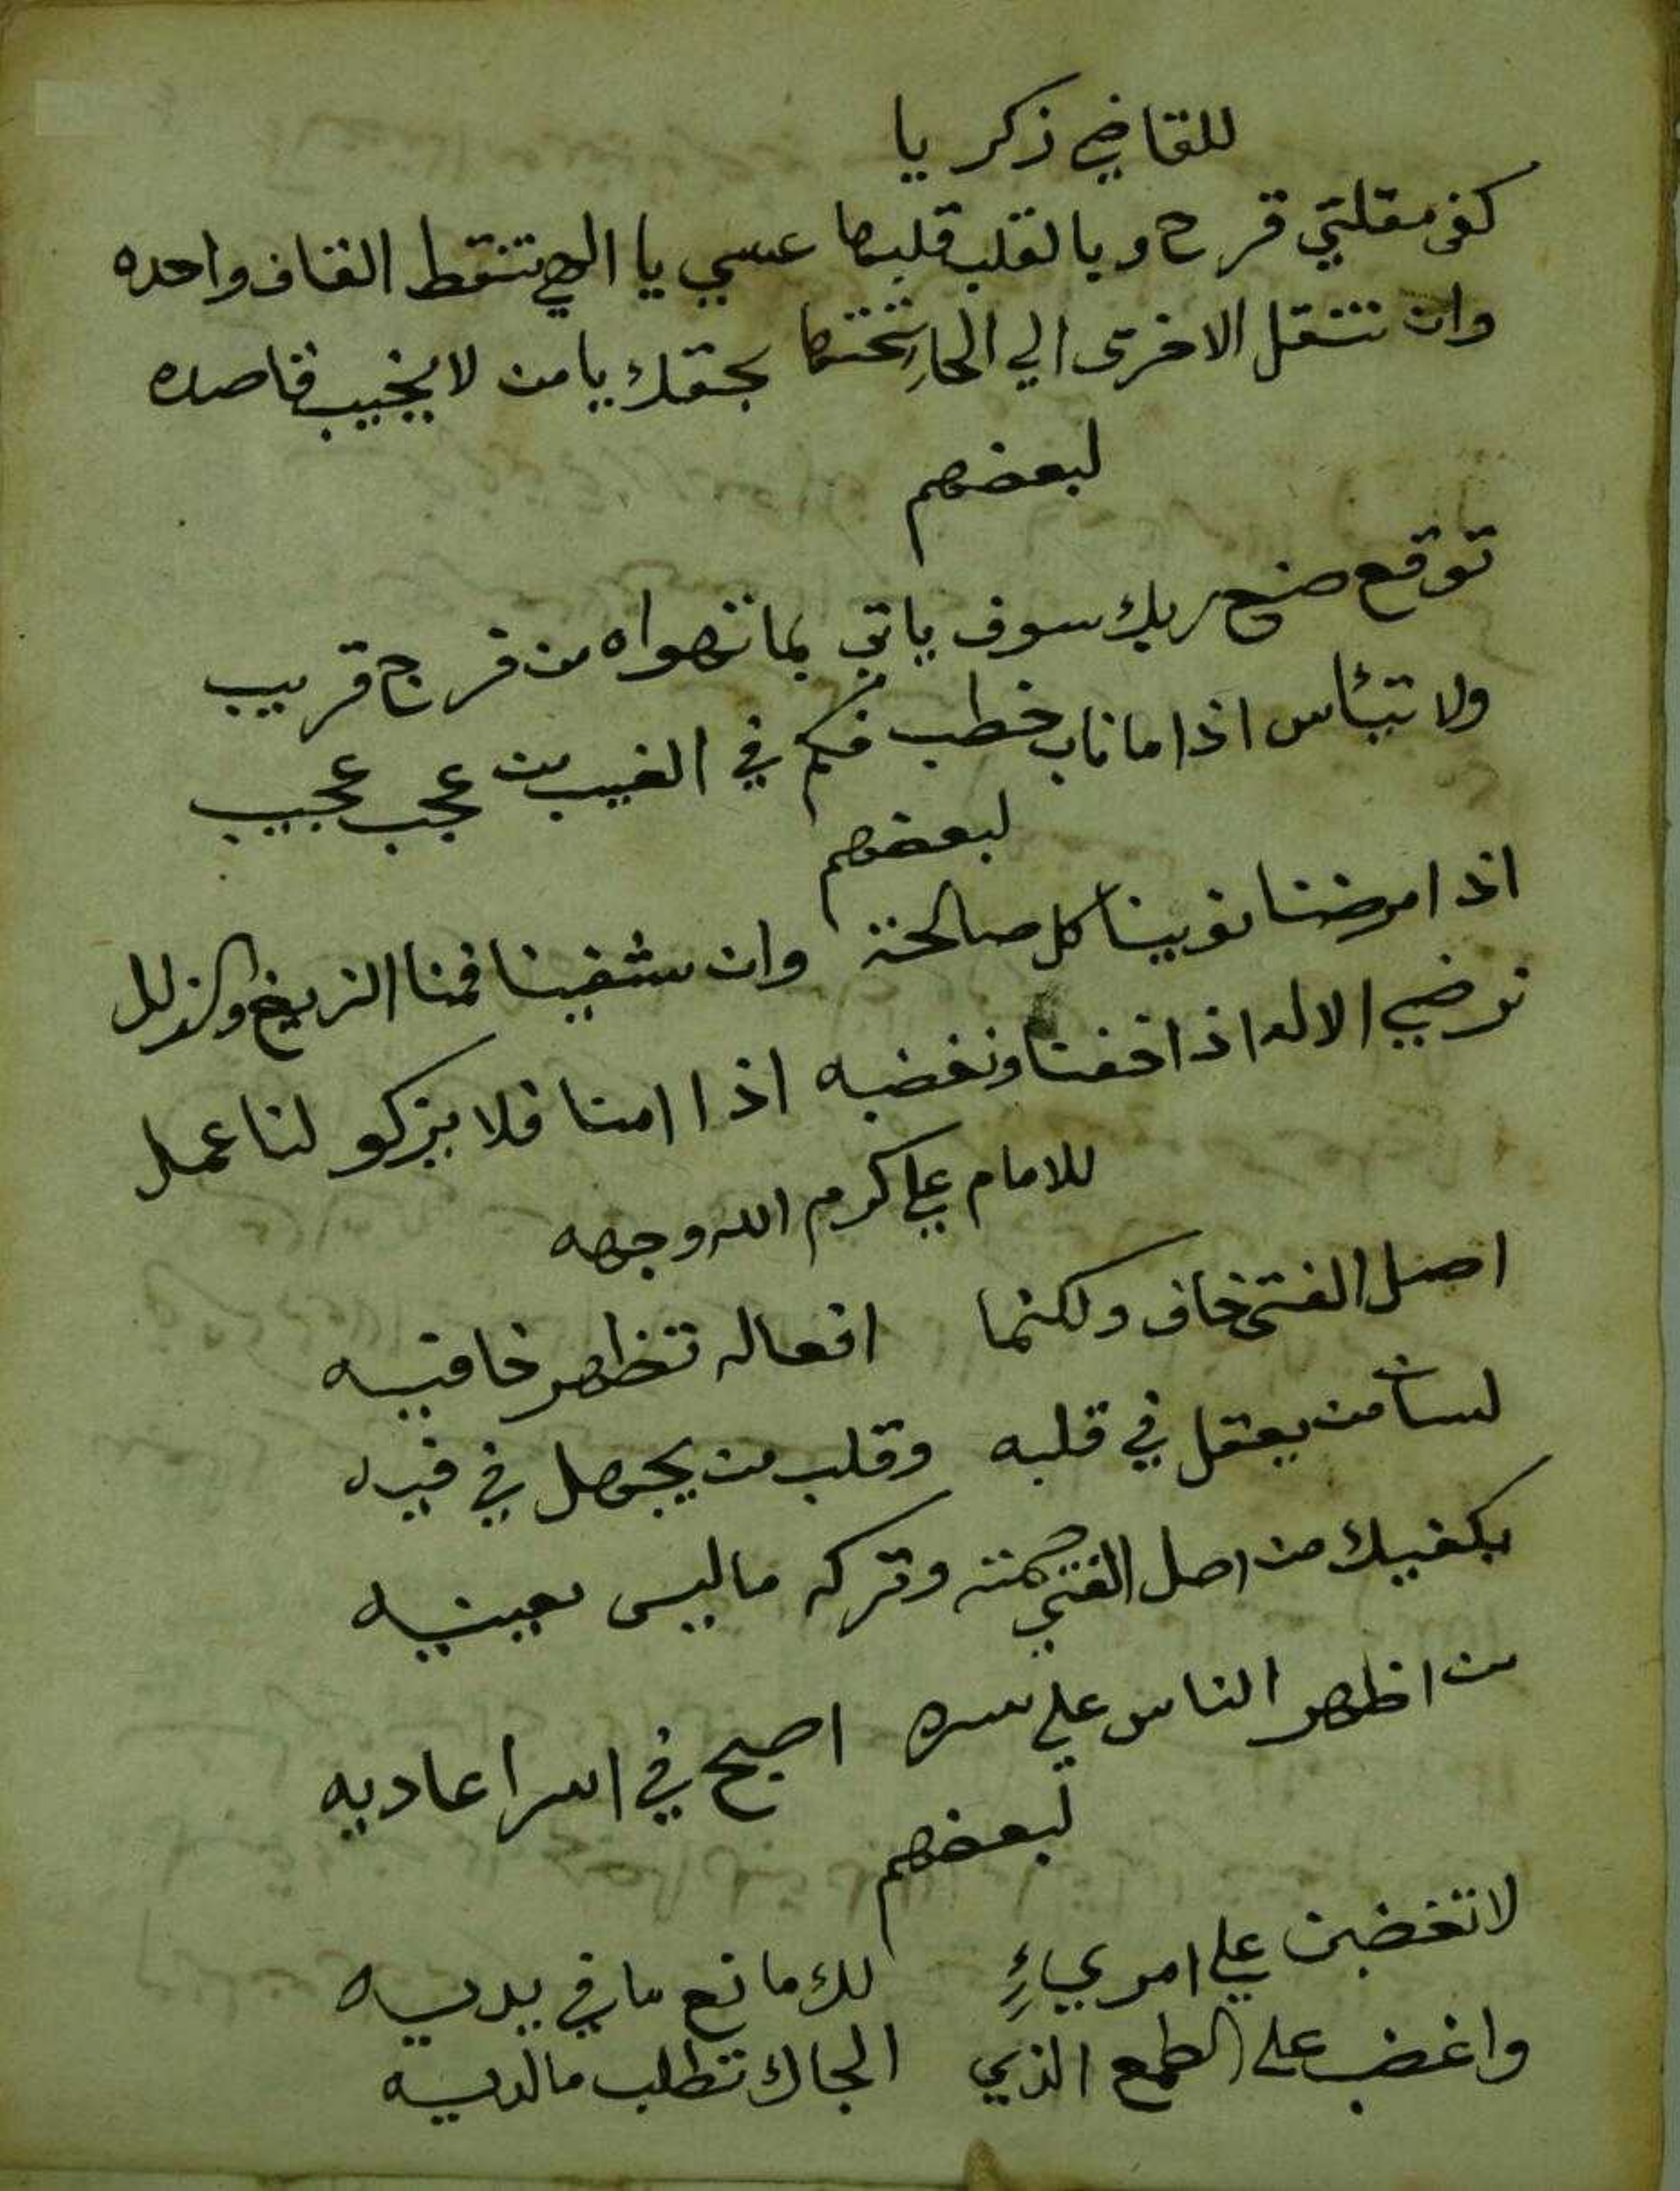 للقاضي زكريا
كفى مقلتي قرح وبالقلب قلبها عسى يا الهي تنقط القاف واحده
وان تنقل الاخرى الي الحا تحتها بحقك يا من لا يخيب قاصده
لبعضهم
توقع صنع ربك سوف ياتي بما تهواه من فرج قريب
ولا تيئاس اذا ما ناب خطب فكم في الغيب من عجب عجيب
لبعضهم
اذا مرضنا نوينا كل صالحة وان شفينا فمنا الزيغ والزلل
نرضي الاله اذا خفنا ونغضبه اذا امنا فلا يزكو لنا عمل
للامام علي كرم الله وجهه
اصل الفتى خاف ولكنما افعاله تظهر خافيه
لسان من يعقل في قلبه وقلب من يجهل في فيه
يكفيك من اصل الفتي همته وتركه ما ليس يعينه
من اظهر الناس على سره اصبح في اسر اعاديه
لبعضهم
لا تغضبن علي امريءٍ لك مانع ما في يديه
واغضب على الطمع الذي الجاك تطلب ما لديه